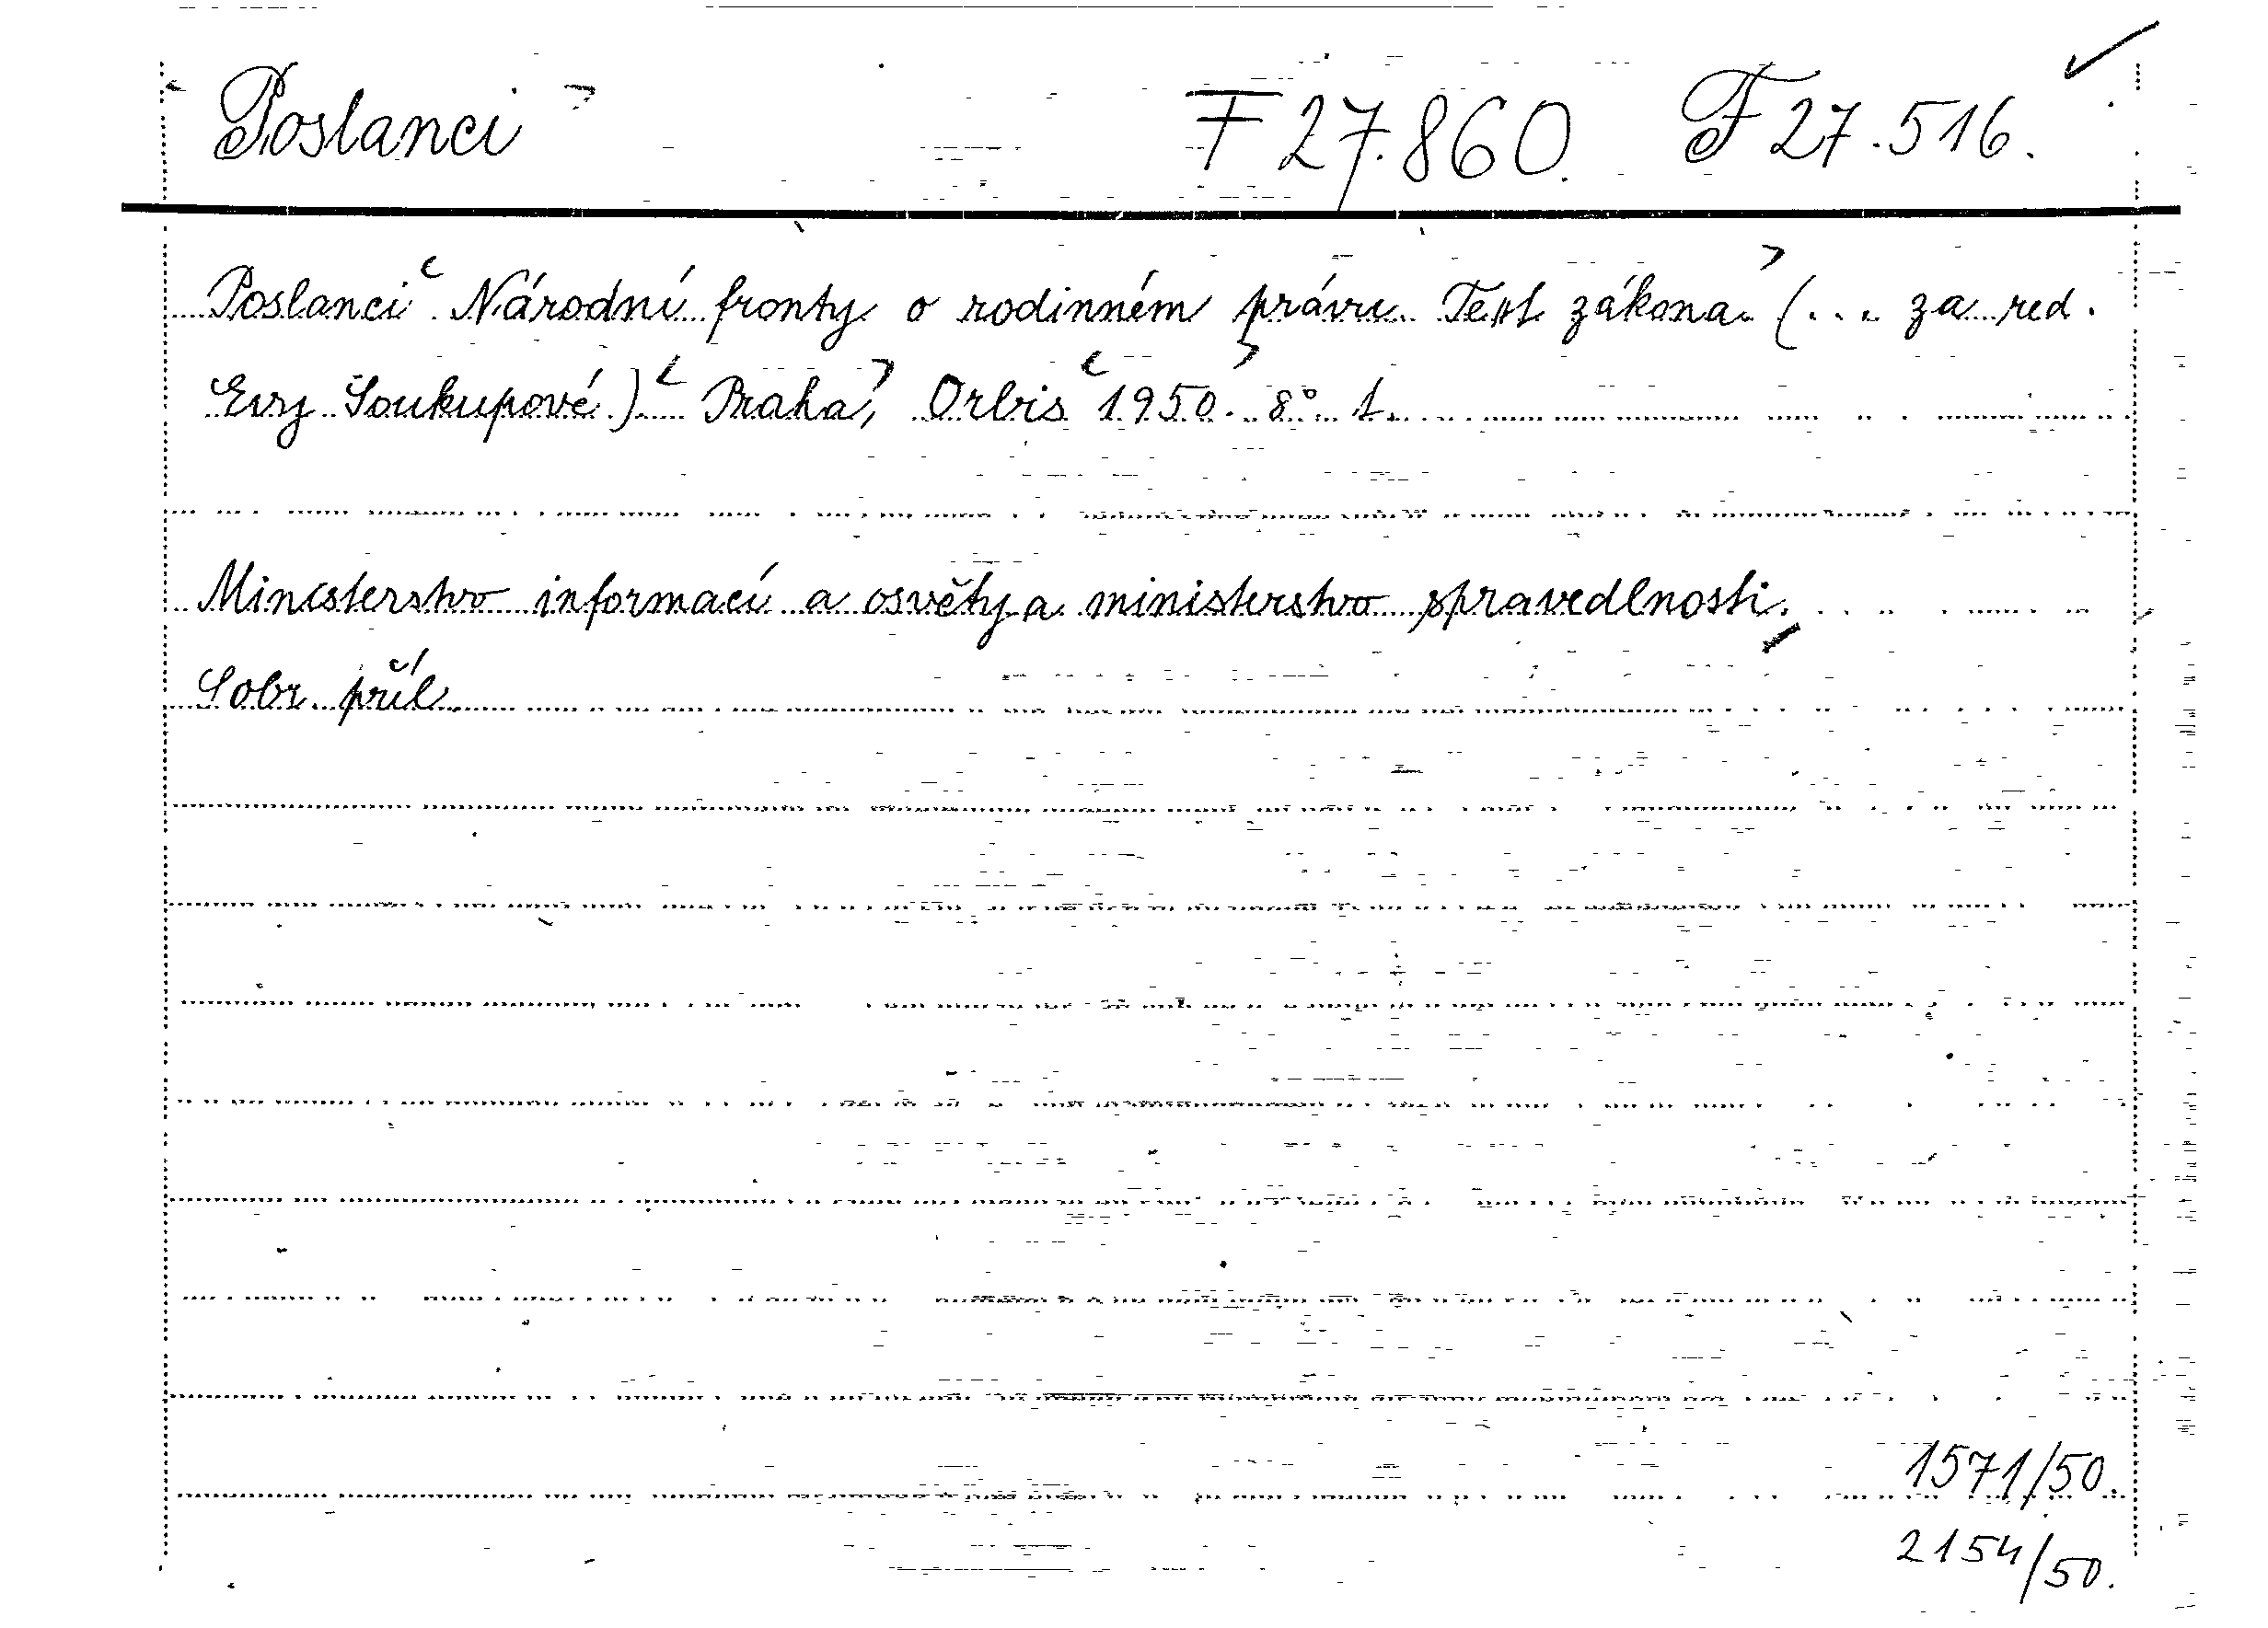 Poslanci F 27.860. F 27.516.
Poslanci Národní fronty o rodinném právu. Text zákona. (... za red.
Evy Soukupové.) Praha, Orbis 1950. 8°. 1.
Ministerstvo informací a osvěty a ministerstvo spravedlnosti.
Sobr. příl.
1571/50.
2154/50.